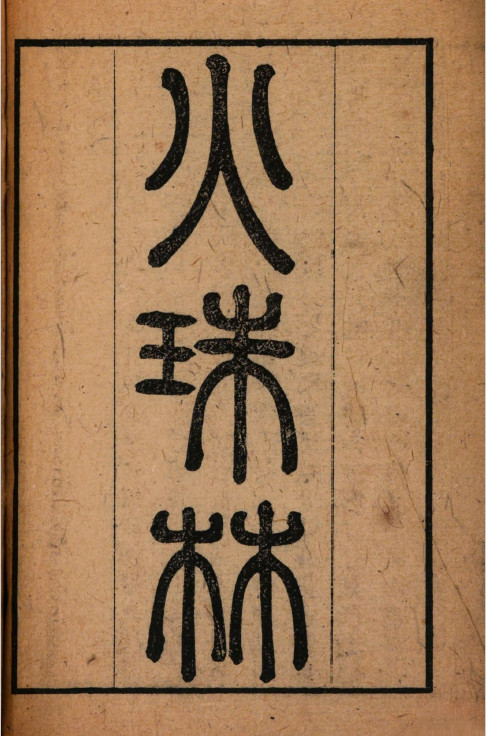 火珠林